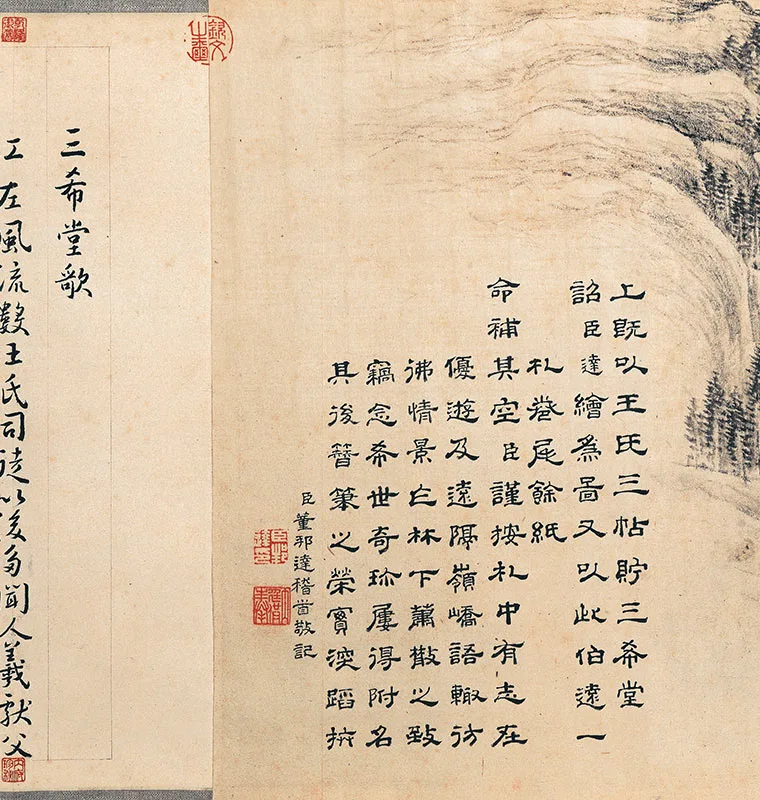 上既以王氏三帖貯三希堂
詔臣達繪為圖又以此伯遠一
札卷尾餘紙
命補其空臣謹按札中有志在
優遊及遠隔嶺嶠語輙彷
彿情景林下蕭散之致
竊念希世奇珍屢得附名
其後簪筆之榮實深蹈抃
臣董邦達稽首敬記
三希堂歌
江左風流數王氏司徒以後多聞人羲獻父